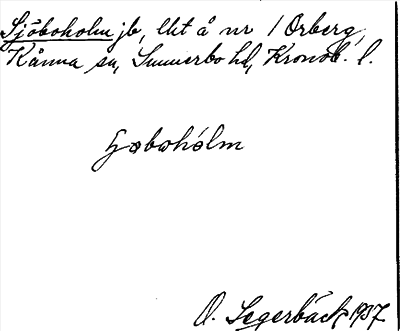 Sjöboholm jb, lht å nr 1 Orberg,
Kånna sn, Sunnerbo hd, Kronob. l.
O. Segerbäck 1937